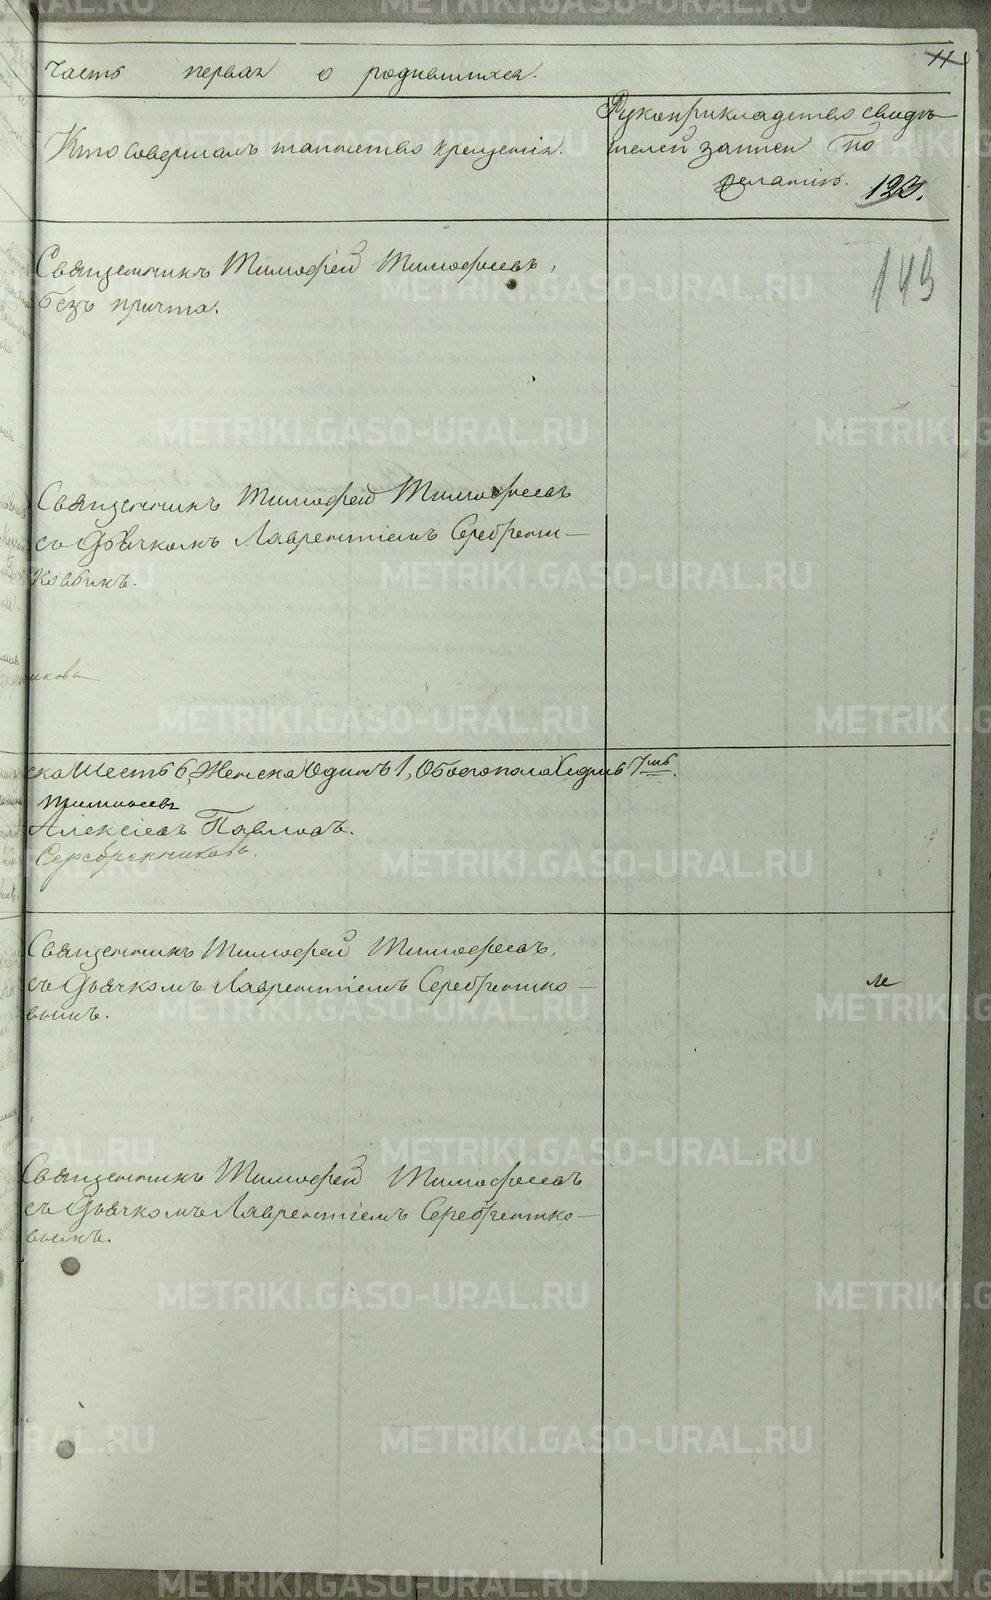 11
Часть первая о родившихся.
Кто совершалъ таинство крещенія.
Рукоприкладство свидѣ-
телей записи по
желанію. 123.
149
Священникъ Тимофей Тимофеевъ,
безъ причта.
Священникъ Тимофей Тимофеевъ
съ Дьячкомъ Лаврентіемъ Серебрени-
ковымъ.
никовъ
ска Шесть 6, Женска Одинъ 1, Обоего пола Седмь 7мь.
Тимофеевъ
Алексіевъ Павловъ.
Серебренниковъ.
Священникъ Тимофей Тимофеевъ,
съ Дьячкомъ Лаврентіемъ Серебренико-
вымъ.
Священникъ Тимофей Тимофеевъ
съ Дьячкомъ Лаврентіемъ Серебренико-
вымъ.
METRIKI.GASO-URAL.RU